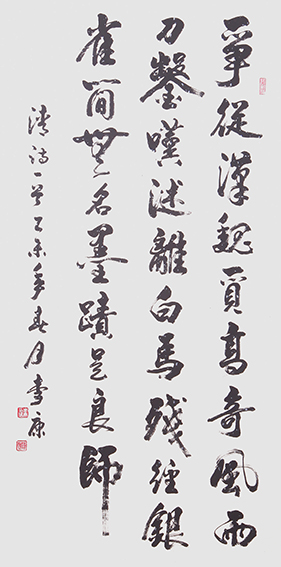 爭從漢魏覓高奇風雨
刀鑿嘆迷離白馬殘經銀
雀簡無名墨蹟是良師
清詩一首乙未年春月李康